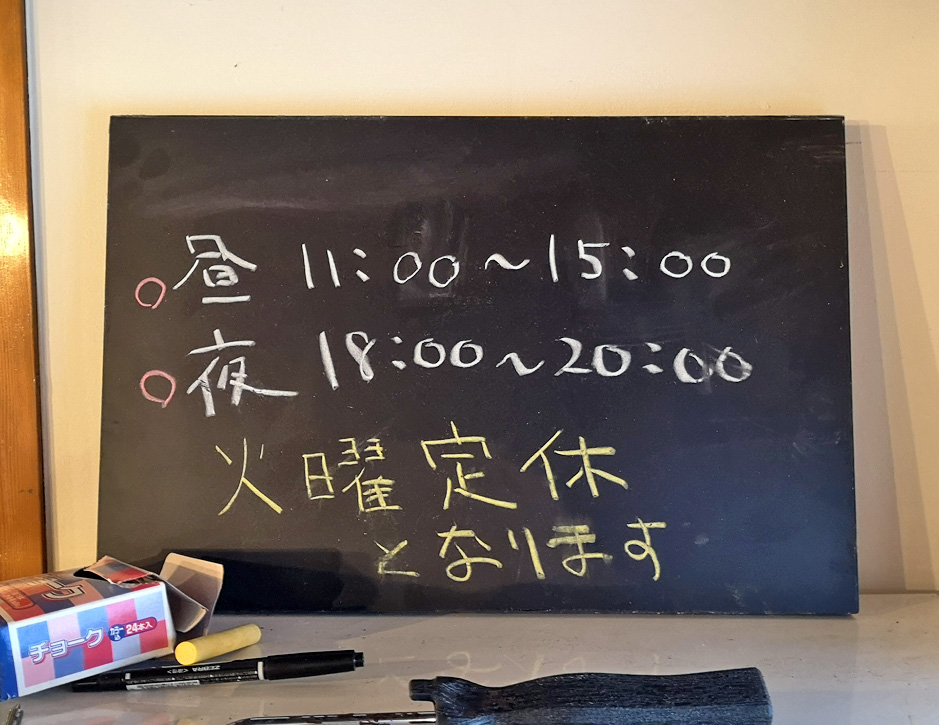 ○昼 11:00~15:00
○夜 18:00~20:00
火曜定休
となります
チョーク カラー込 24本入
ZEBRA